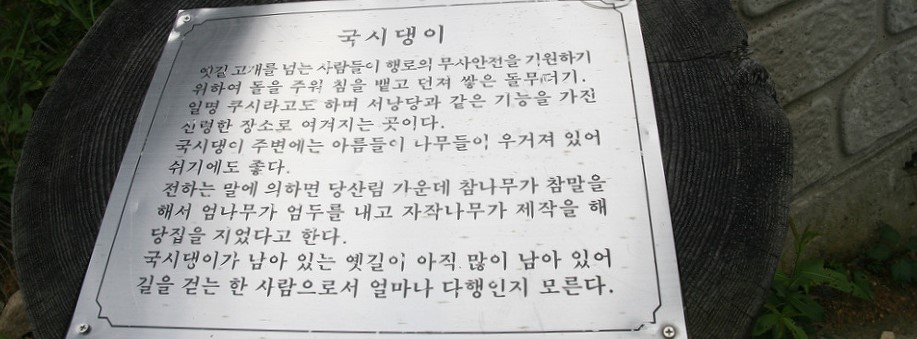 국시댕이
옛길 고개를 넘는 사람들이 행로의 무사안전을 기원하기
위하여 돌을 주워 침을 뱉고 던져 쌓은 돌무더기.
일명 쿠시라고도 하며 서낭당과 같은 기능을 가진
신령한 장소로 여겨지는 곳이다.
국시댕이 주변에는 아름들이 나무들이 우거져 있어
쉬기에도 좋다.
전하는 말에 의하면 당산림 가운데 참나무가 참말을
해서 엄나무가 엄두를 내고 자작나무가 제작을 해
당집을 지었다고 한다.
국시댕이가 남아 있는 옛길이 아직 많이 남아 있어
길을 걷는 한 사람으로서 얼마나 다행인지 모른다.